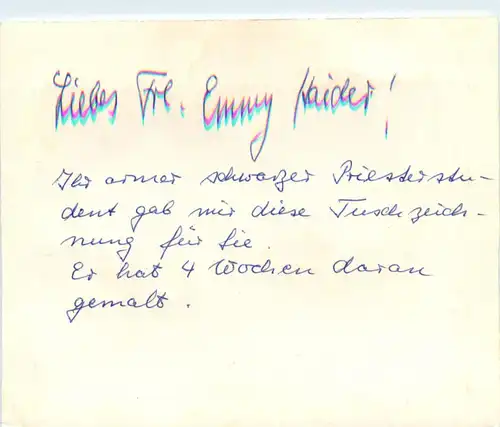 Liebes Frl. Emmy Haider!
Ihr armer schwarzer Priesterstu-
dent gab mir diese Tuschzeich-
nung für Sie.
Er hat 4 Wochen daran
gemalt.